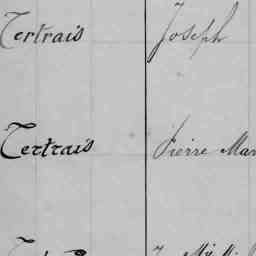 Tertrais Joseph
Tertrais Pierre Mar